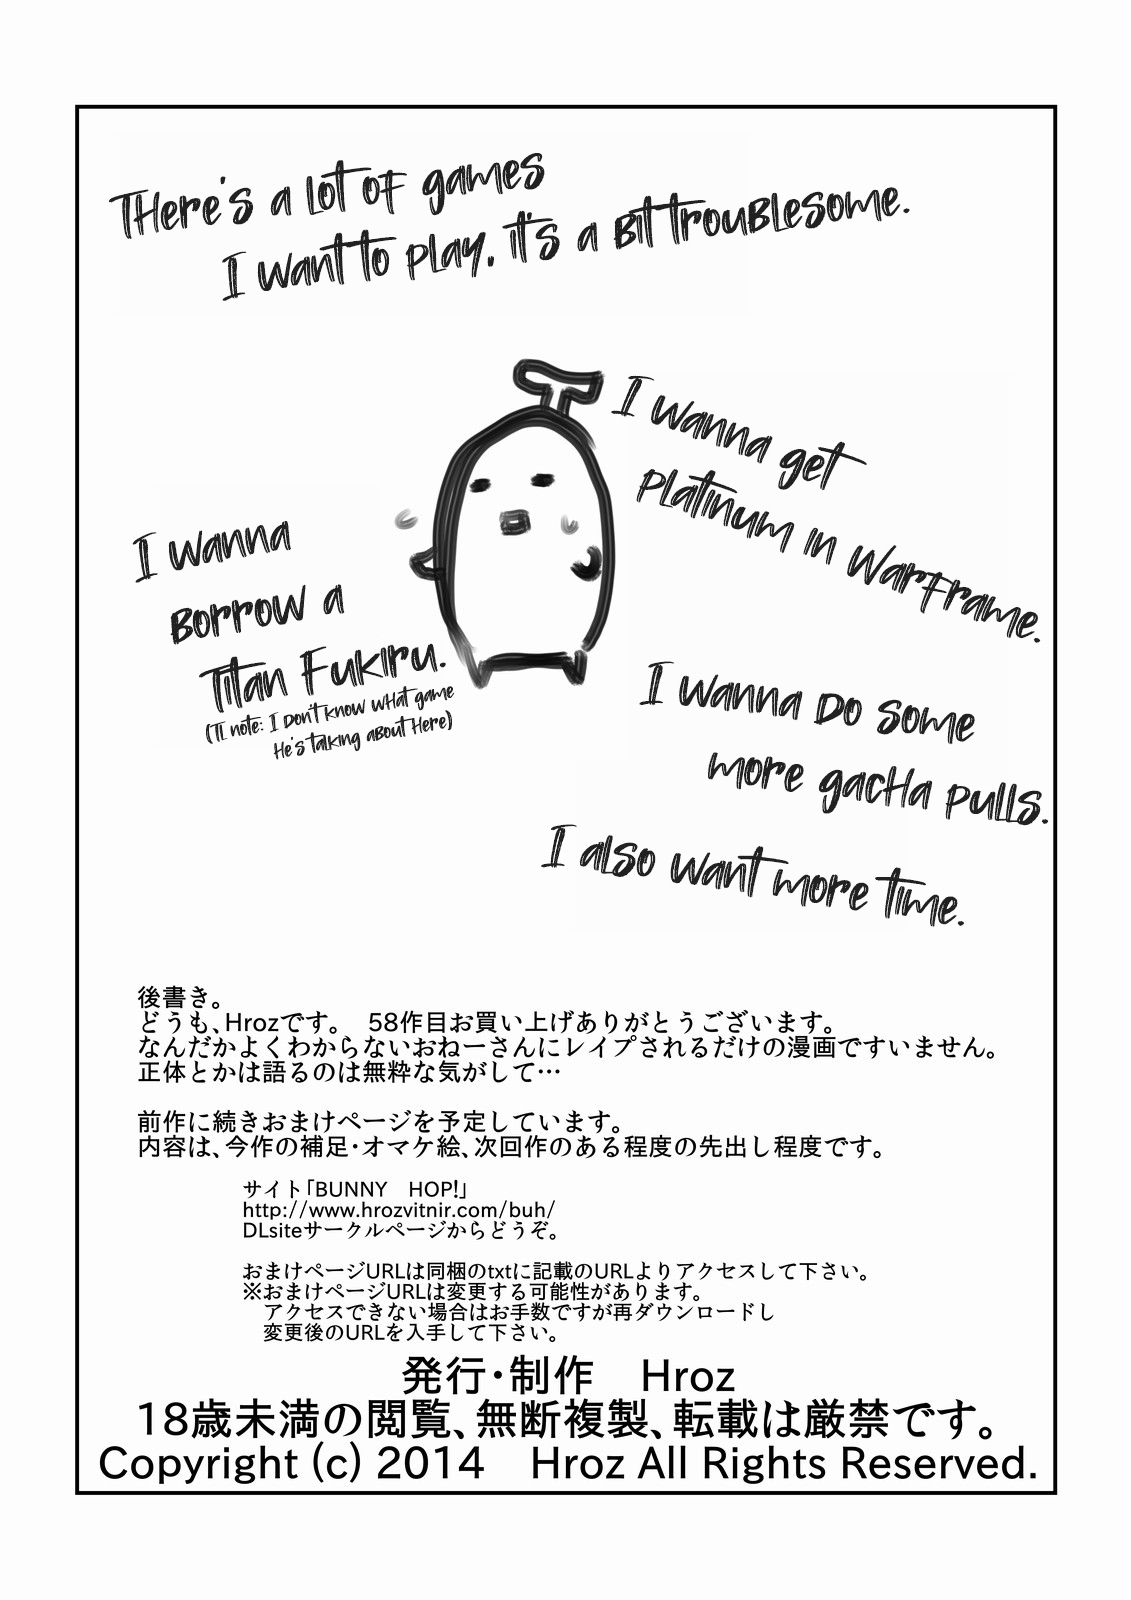 There's a lot of games
I want to play, it's a bit troublesome.
I wanna get
platinum in Warframe.
I wanna
borrow a
Titan Fukiru.
(TL note: I don't know what game
He's talking about here)
I wanna do some
more gacha pulls.
I also want more time.
後書き。
どうも、Hrozです。　58作目お買い上げありがとうございます。
なんだかよくわからないおねーさんにレイプされるだけの漫画ですいません。
正体とかは語るのは無粋な気がして…
前作に続きおまけページを予定しています。
内容は、今作の補足・オマケ絵、次回作のある程度の先出し程度です。
サイト「BUNNY　HOP!」
http://www.hrozvitnir.com/buh/
DLsiteサークルページからどうぞ。
おまけページURLは同梱のtxtに記載のURLよりアクセスして下さい。
※おまけページURLは変更する可能性があります。
アクセスできない場合はお手数ですが再ダウンロードし
変更後のURLを入手して下さい。
発行・制作　Hroz
18歳未満の閲覧、無断複製、転載は厳禁です。
Copyright (c) 2014　Hroz All Rights Reserved.